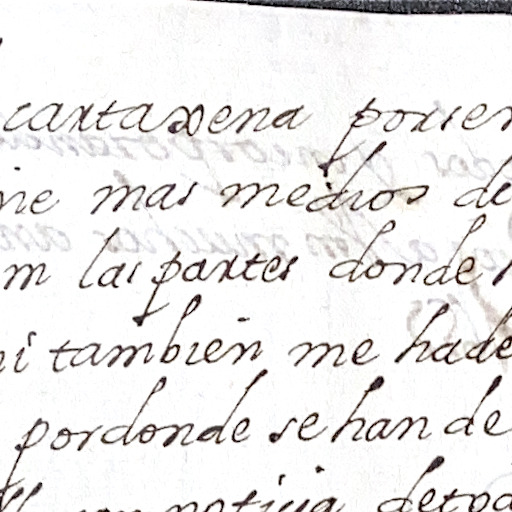 cartaxena porser
ne mas medios de
m las partes donde
ni tambien me hade
pordonde se han de
con noticia detod